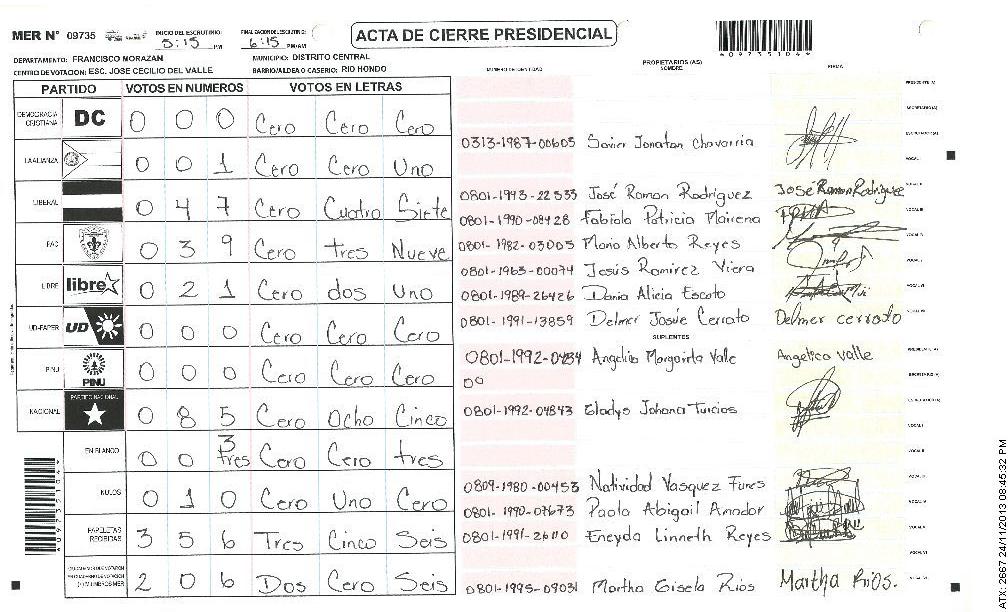 MER Nº 09735 INICIO DEL ESCRUTINIO: 5:15 PM FINALIZACION DEL ESCRUTINIO: 6:15 PM/AM
ACTA DE CIERRE PRESIDENCIAL
*09735104*
DEPARTAMENTO: FRANCISCO MORAZAN MUNICIPIO: DISTRITO CENTRAL
CENTRO DE VOTACION: ESC. JOSE CECILIO DEL VALLE BARRIO/ALDEA O CASERIO: RIO HONDO
PARTIDO VOTOS EN NUMEROS VOTOS EN LETRAS
DEMOCRACIA CRISTIANA DC 0 0 0 Cero Cero Cero
LA ALIANZA 0 0 1 Cero Cero Uno
LIBERAL 0 4 7 Cero Cuatro Siete
PAC 0 3 9 Cero tres Nueve
LIBRE libre 0 2 1 Cero dos Uno
UD-FAPER UD 0 0 0 Cero Cero Cero
PINU PINU 0 0 0 Cero Cero Cero
NACIONAL PARTIDO NACIONAL 0 8 5 Cero Ocho Cinco
EN BLANCO 0 0 3 tres Cero Cero tres
NULOS 0 1 0 Cero Uno Cero
PAPELETAS RECIBIDAS 3 5 6 Tres Cinco Seis
2 0 6 Dos Cero Seis
NUMERO DE IDENTIDAD PROPIETARIOS (AS) NOMBRE FIRMA
PRESIDENTE (A)
SECRETARIO (A)
0313-1987-00605 Javier Jonatan Chavarria ESCRUTADOR (A)
VOCAL I
0801-1943-22533 José Ramon Rodriguez José Ramon Rodriguez VOCAL II
0801-1990-08428 Fabiola Patricia Mairena VOCAL III
0801-1982-03005 Mario Alberto Reyes VOCAL IV
0801-1963-00074 Jesús Ramirez Viera VOCAL V
0801-1989-26426 Dania Alicia Escoto VOCAL VI
0801-1991-13859 Delmer Josúe Cerrato Delmer cerrato VOCAL VII
SUPLENTES
0801-1992-0484 Angelica Margarita Valle Angelica valle PRESIDENTE (A)
00 SECRETARIO (A)
0801-1992-04843 Gladys Johana Turcios ESCRUTADOR (A)
VOCAL I
VOCAL II
0809-1980-00453 Natividad Vasquez Funes VOCAL III
0801-1990-07673 Paola Abigail Amador VOCAL IV
0801-1991-26110 Eneyda Linneth Reyes VOCAL V
VOCAL VI
0801-1995-09031 Martha Gisela Rios Martha Rios. VOCAL VII
*09735104*
ATX 2967 24/11/2013 08:45:32 PM